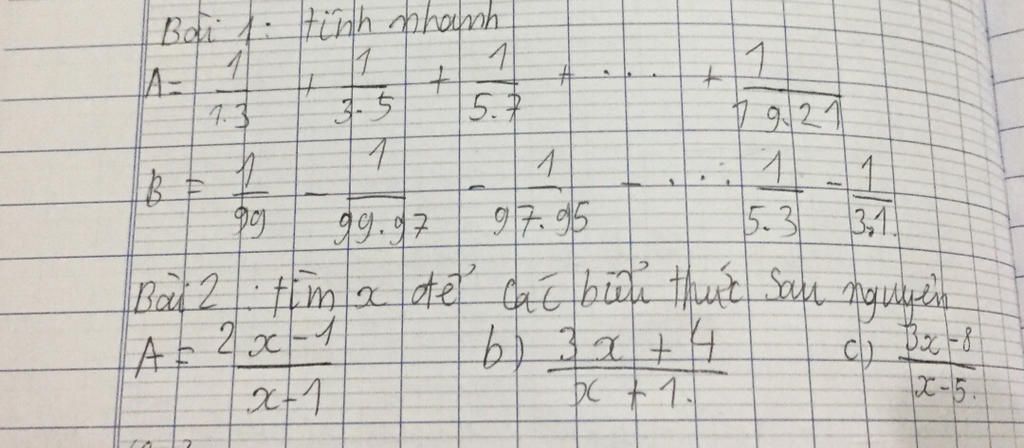 Bài 1: tính nhanh
A = 1/1.3 + 1/3.5 + 1/5.7 + .... + 1/19.21
B = 1/99 - 1/99.97 - 1/97.95 - .... 1/5.3 - 1/3.1.
Bài 2 : tìm x để các biểu thức sau nguyên
A = 2x-1/x-1 b) 3x+4/x+1. c) 3x-8/x-5.